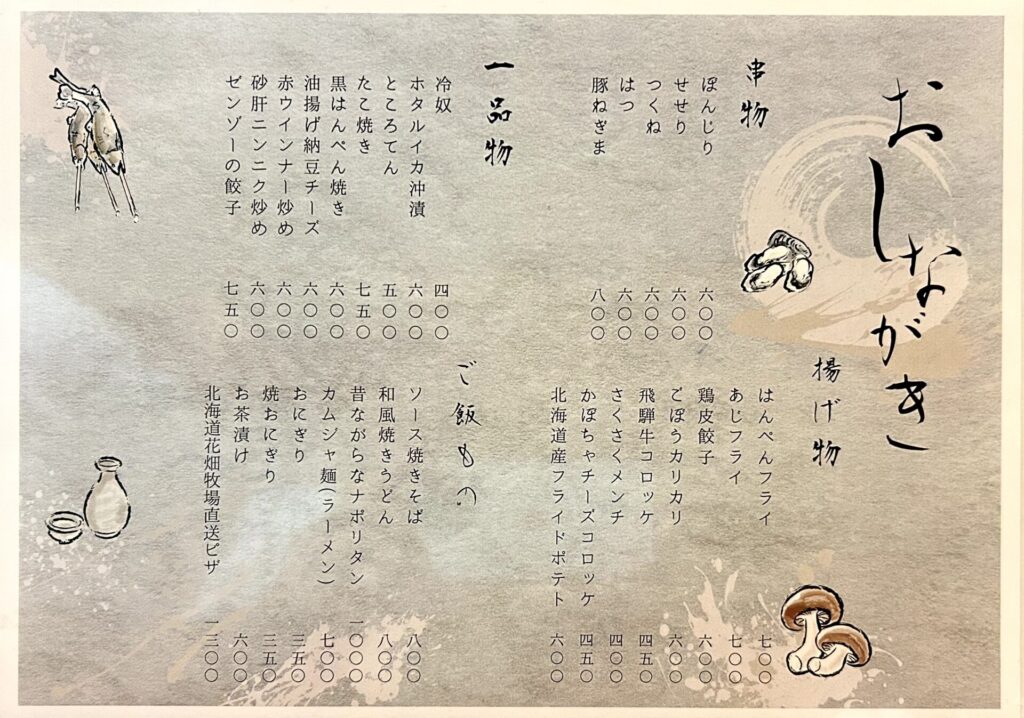 おしながき
串物
ぼんじり 六〇〇
せせり 六〇〇
つくね 六〇〇
はつ 六〇〇
豚ねぎま 八〇〇
揚げ物
はんぺんフライ 七〇〇
あじフライ 七〇〇
鶏皮餃子 六〇〇
ごぼうカリカリ 六〇〇
飛騨牛コロッケ 四五〇
さくさくメンチ 四〇〇
かぼちゃチーズコロッケ 四五〇
北海道産フライドポテト 六〇〇
一品物
冷奴 四〇〇
ホタルイカ沖漬 六〇〇
ところてん 五〇〇
たこ焼き 七五〇
黒はんぺん焼き 六〇〇
油揚げ納豆チーズ 六〇〇
赤ウインナー炒め 六〇〇
砂肝ニンニク炒め 六〇〇
ゼンゾーの餃子 七五〇
ご飯もの
ソース焼きそば 八〇〇
和風焼きうどん 八〇〇
昔ながらなナポリタン 一〇〇〇
カムジャ麺(ラーメン) 七〇〇
おにぎり 三五〇
焼おにぎり 三五〇
お茶漬け 六〇〇
北海道花畑牧場直送ピザ 一三〇〇